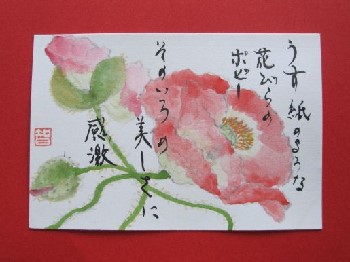 うす紙のような
花びらの
ポピー
そのいろの
美しさに
感激